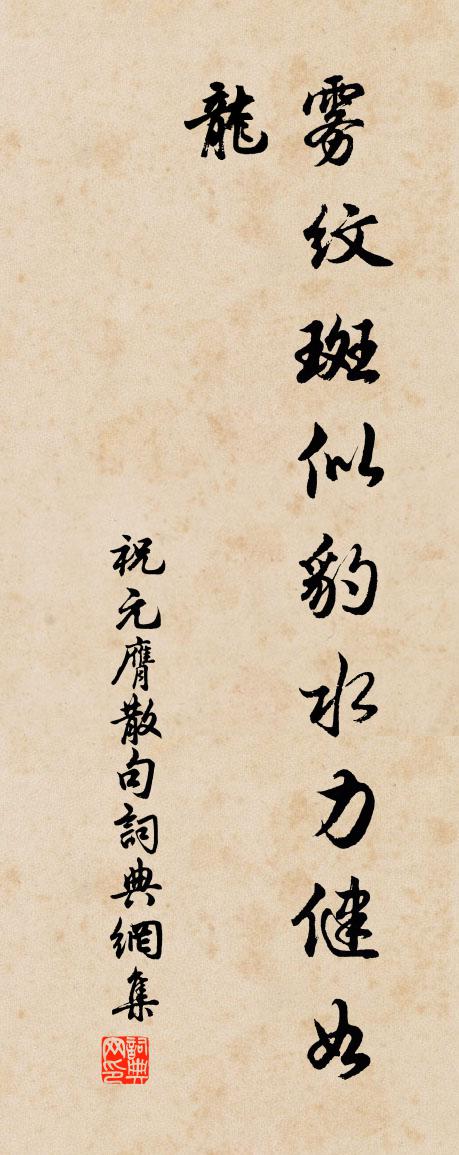 雾纹斑似豹水力健如
龍
祝元膺散句詞典網集
詞典网印